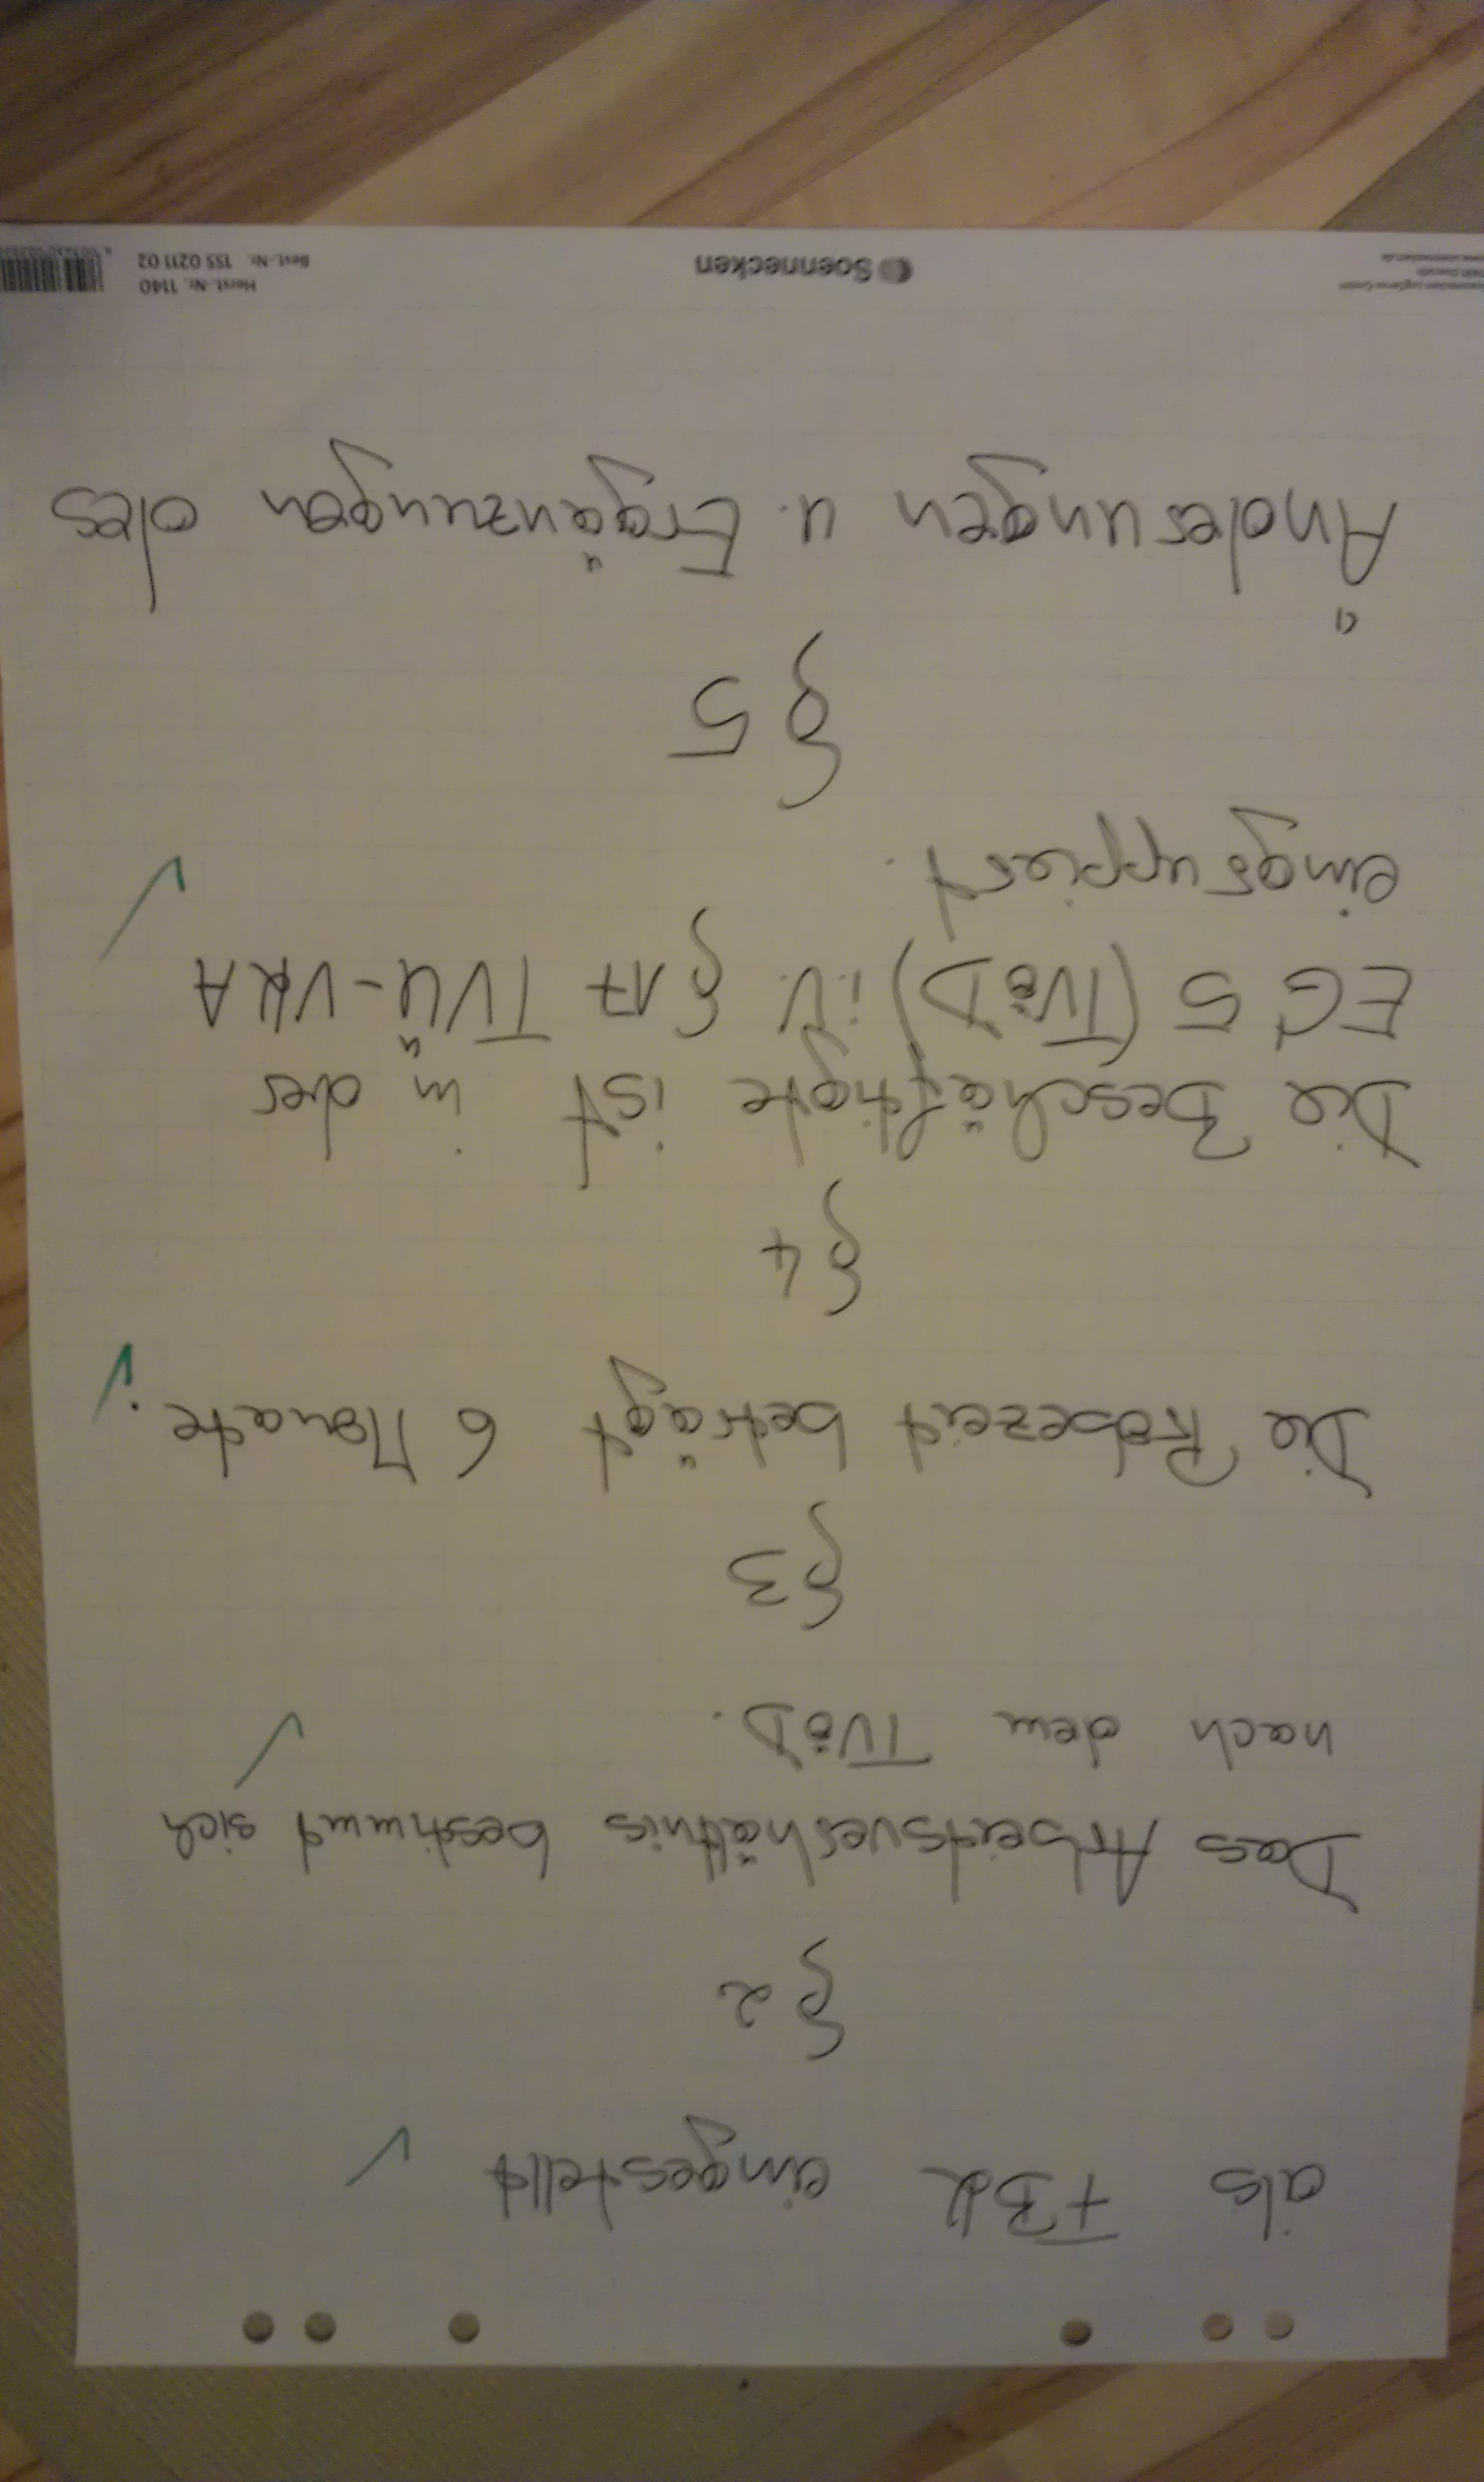 als TBK eingestellt
§ 2
Das Arbeitsverhältnis bestimmt sich
nach dem TVöD.
§ 3
Die Probezeit beträgt 6 Monate.
§ 4
Die Beschäftigte ist in der
EG 5 (TVöD) i.V. § 17 TVÜ-VKA
eingruppiert.
§ 5
Änderungen u. Ergänzungen des
Soennecken
Herst.-Nr. 1140
Best.-Nr. 155 0211 02